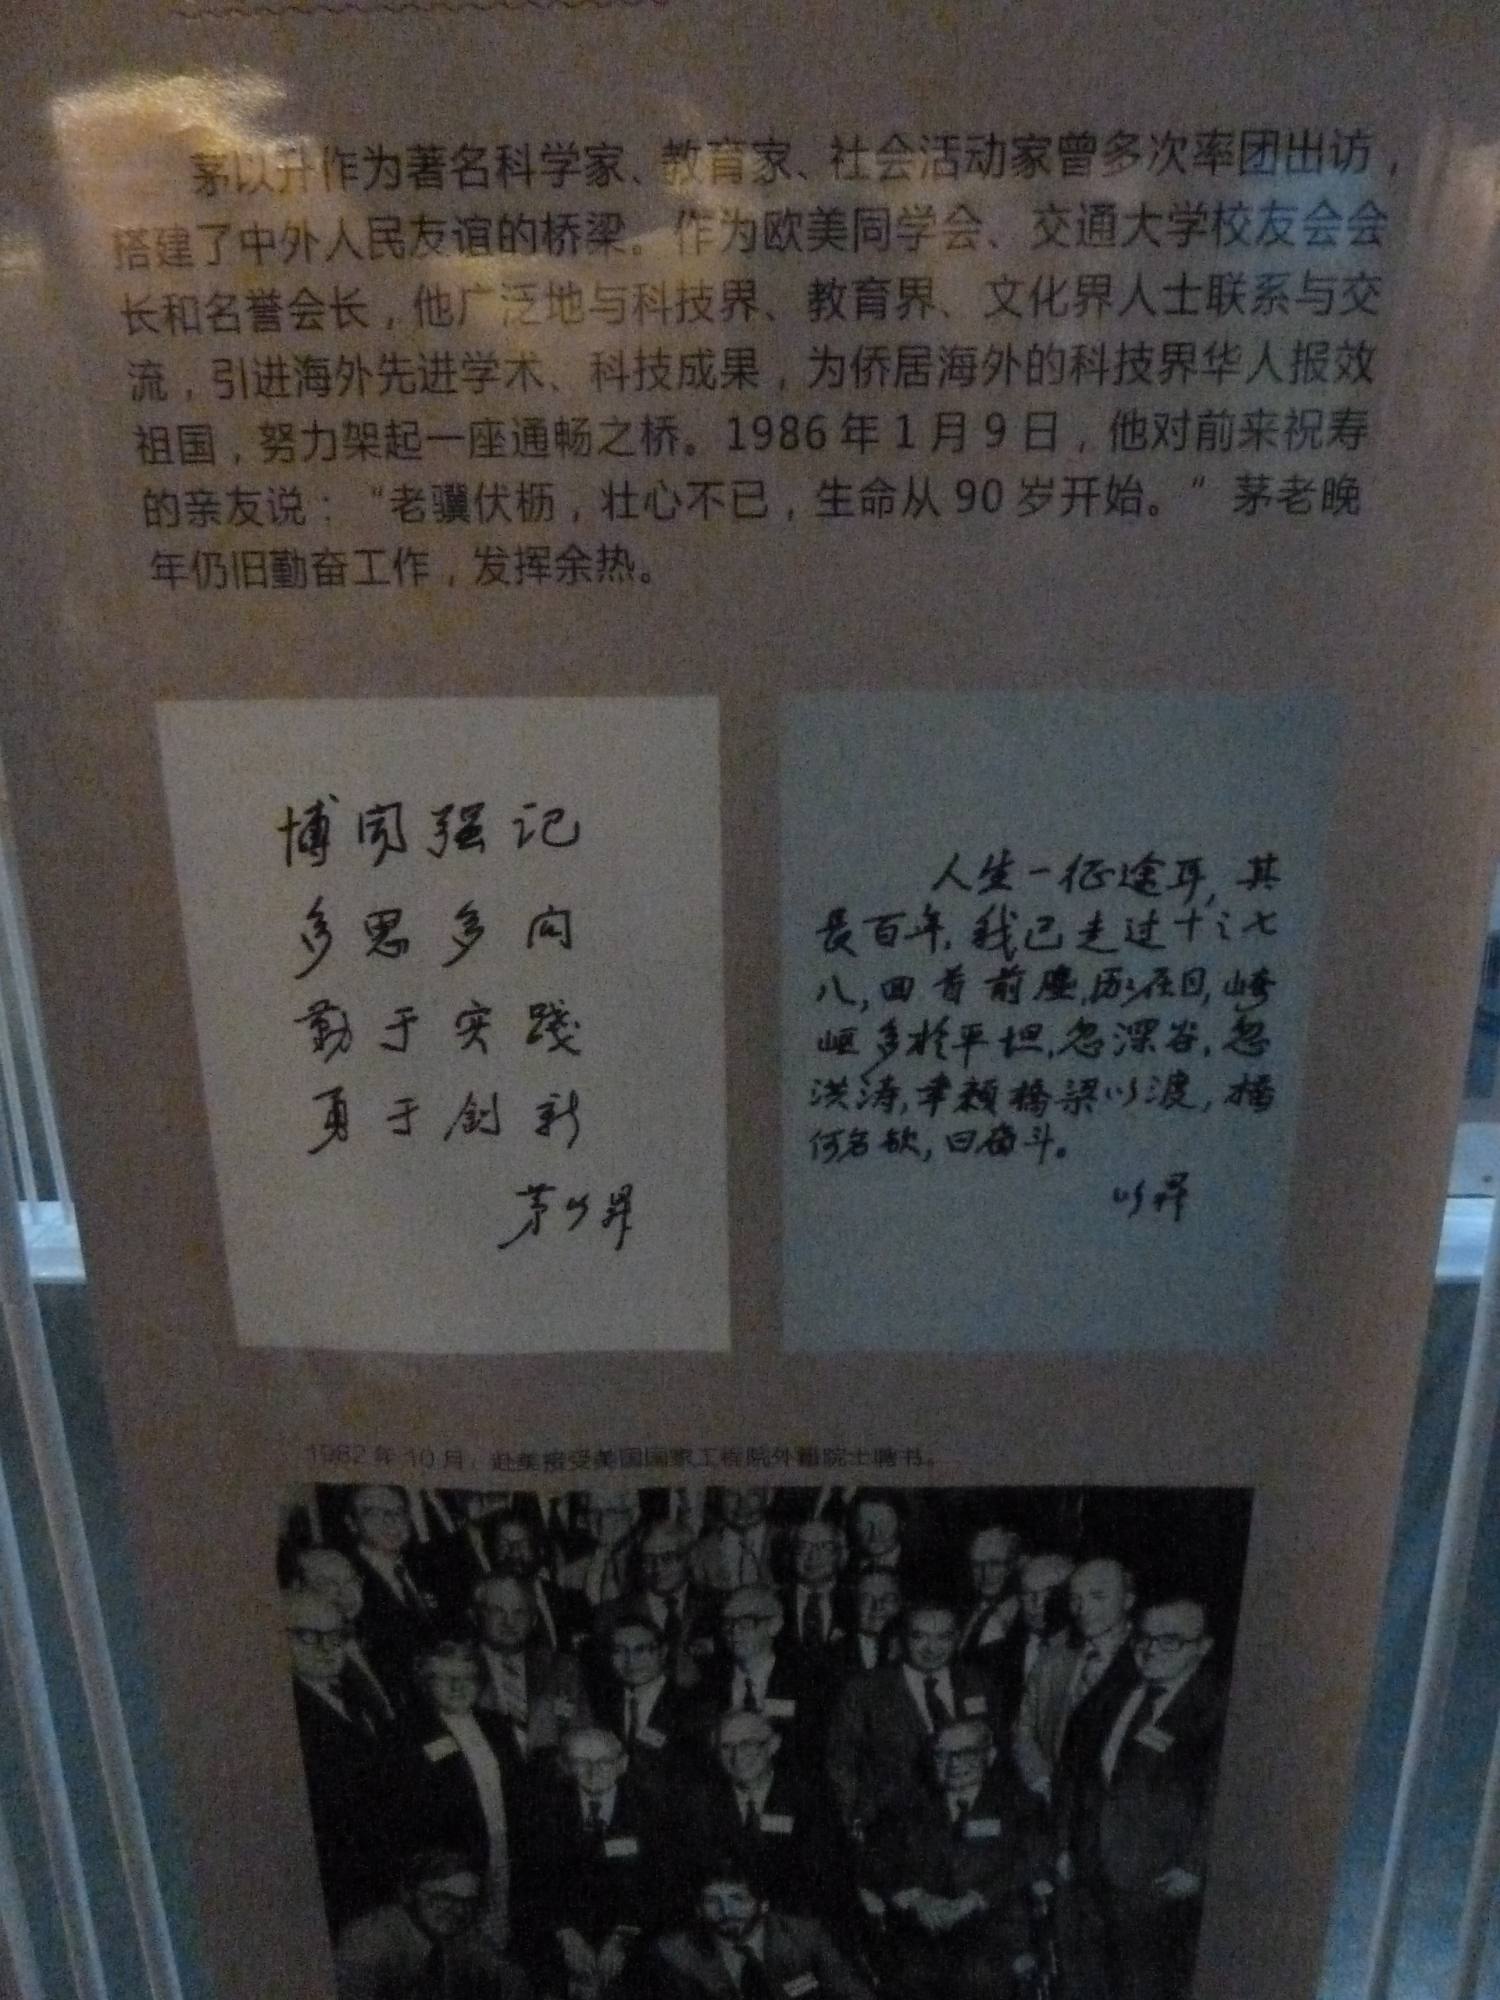 茅以升作为著名科学家、教育家、社会活动家曾多次率团出访，
搭建了中外人民友谊的桥梁。作为欧美同学会、交通大学校友会会
长和名誉会长，他广泛地与科技界、教育界、文化界人士联系与交
流，引进海外先进学术、科技成果，为侨居海外的科技界华人报效
祖国，努力架起一座通畅之桥。1986年1月9日，他对前来祝寿
的亲友说：“老骥伏枥，壮心不已，生命从90岁开始。”茅老晚
年仍旧勤奋工作，发挥余热。
博闻强记
多思多问
勤于实践
勇于创新
茅以昇
人生一征途耳，其
长百年，我已走过十之七
八，回首前尘，历历在目，崎
岖多於平坦，忽深谷，忽
洪涛，幸赖桥梁以渡，桥
何名欤，曰奋斗。
以昇
1982年10月，赴美接受美国国家工程院外籍院士聘书。